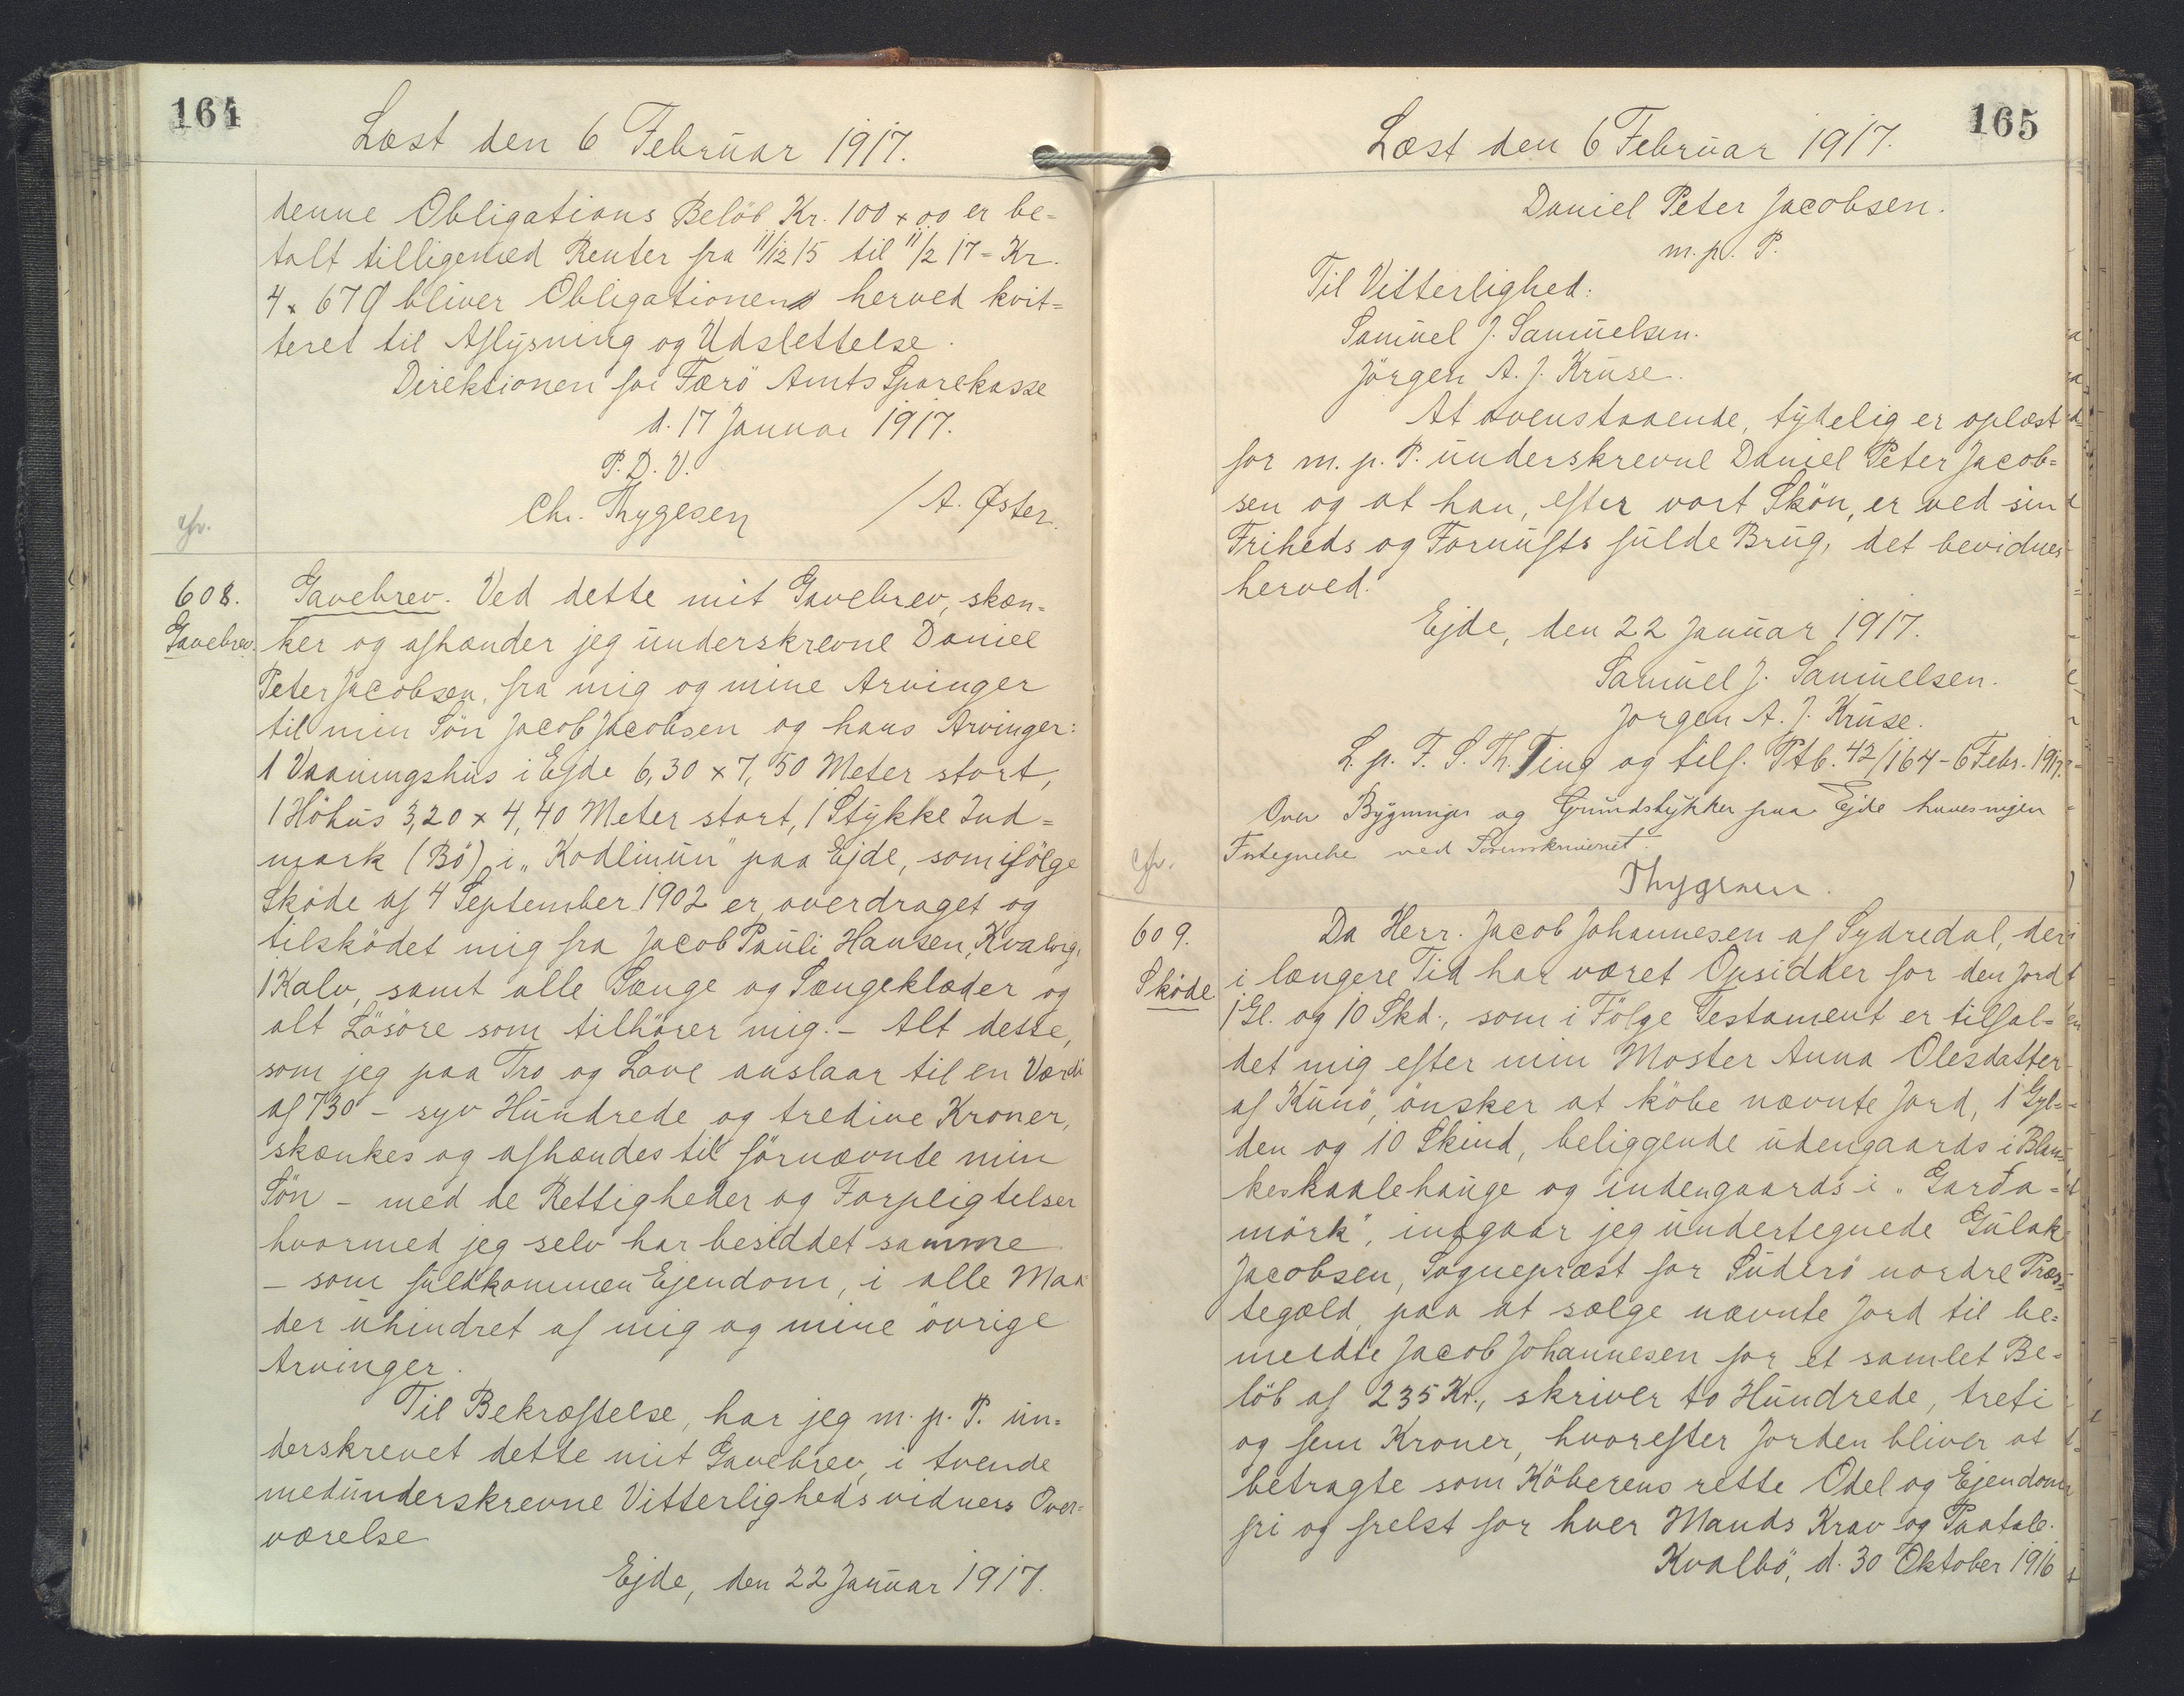 164
Læst den 6 Februar 1917.
denne Obligations Beløb Kr. 100 × 00 er be-
talt tilligemed Renter fra 11/12 15 til 11/2 17 - Kr.
4 × 67 Ø bliver Obligationen herved kvit-
teret til Aflysning og Udslettelse.
Direktionen for Færö Amts Sparekasse
d. 17 Januar 1917.
P. D. V.
Ch. Thygesen / A. Øster.
608. Gavebrev. Ved dette mit Gavebrev, skæn-
Gavebrev. ker og afhænder jeg underskrevne Daniel
Peter Jacobsen, fra mig og mine Arvinger
til min Sön Jacob Jacobsen og hans Arvinger:
1 Vaaningshus i Ejde 6,30 × 7,50 Meter stort,
1 Höhus 3,20 × 4,40 Meter stort, 1 Stykke Ind-
mark (Bö) i „Kodlinun" paa Ejde, som ifölge
Sköde af 4 September 1902 er overdraget og
tilsködet mig fra Jacob Pauli Hansen, Kvalvig,
1 Kalv, samt alle Senge og Sengeklæder og
alt Lösöre som tilhörer mig. - Alt dette,
som jeg paa Tro og Love anslaar til en Værdi
af 730 - syv Hundrede og tredive Kroner,
skænkes og afhændes til förnævnte min
Sön - med de Rettigheder og Forpligtelser
hvormed jeg selv har besiddet samme
- som fuldkommen Ejendom, i alle Maa
der uhindret af mig og mine övrige
Arvinger.
Til Bekræftelse, har jeg m. p. P. un-
derskrevet dette mit Gavebrev, i tvende
medunderskrevne Vitterligheds vidners Over-
værelse
Ejde, den 22 Januar 1917.
165
Læst den 6 Februar 1917.
Daniel Peter Jacobsen.
m. p. P.
Til Vitterlighed:
Samuel J. Samuelsen.
Jörgen A. J. Kruse.
At ovenstaaende, tydelig er oplæst
for m. p. P. underskrevne Daniel Peter Jacob-
sen og at han, efter vort Skön, er ved sin
Friheds og Fornufts fulde Brug, det bevidnes
herved.
Ejde, den 22 Januar 1917.
Samuel J. Samuelsen.
Jorgen A. J. Kruse.
L. p. F. S. Th. Ting og tilf. Ptb. 42/164 - 6 Febr. 1917.
Over Bygninger og Grundstykker paa Ejde haves ingen
Fortegnelse ved Sorenskriveriet.
Thygesen.
609. Da Herr. Jacob Johannesen af Sydredal, der
Sköde i længere Tid har været Opsidder for den Jord
1 Gl. og 10 Skd., som i Fölge Testament er tilfal-
det mig efter min Moster Anna Olesdatter
af Kunö, önsker at köbe nævnte Jord, 1 Gyl-
den og 10 Skind, beliggende udengaards i Blan-
keskaalehauge og indengaards i „Garða-
mörk", indgaar jeg undertegnede Gulak
Jacobsen, Sognepræst for Suderö nordre Præs-
tegæld, paa at sælge nævnte Jord til be-
meldte Jacob Johannesen for et samlet Be-
löb af 235 Kr., skriver to Hundrede, treti
og fem Kroner, hvorefter Jorden bliver at
betragte som Köberens rette Odel og Ejendom
fri og frelst for hver Mands Krav og Paatale.
Kvalbö, d. 30 Oktober 1916